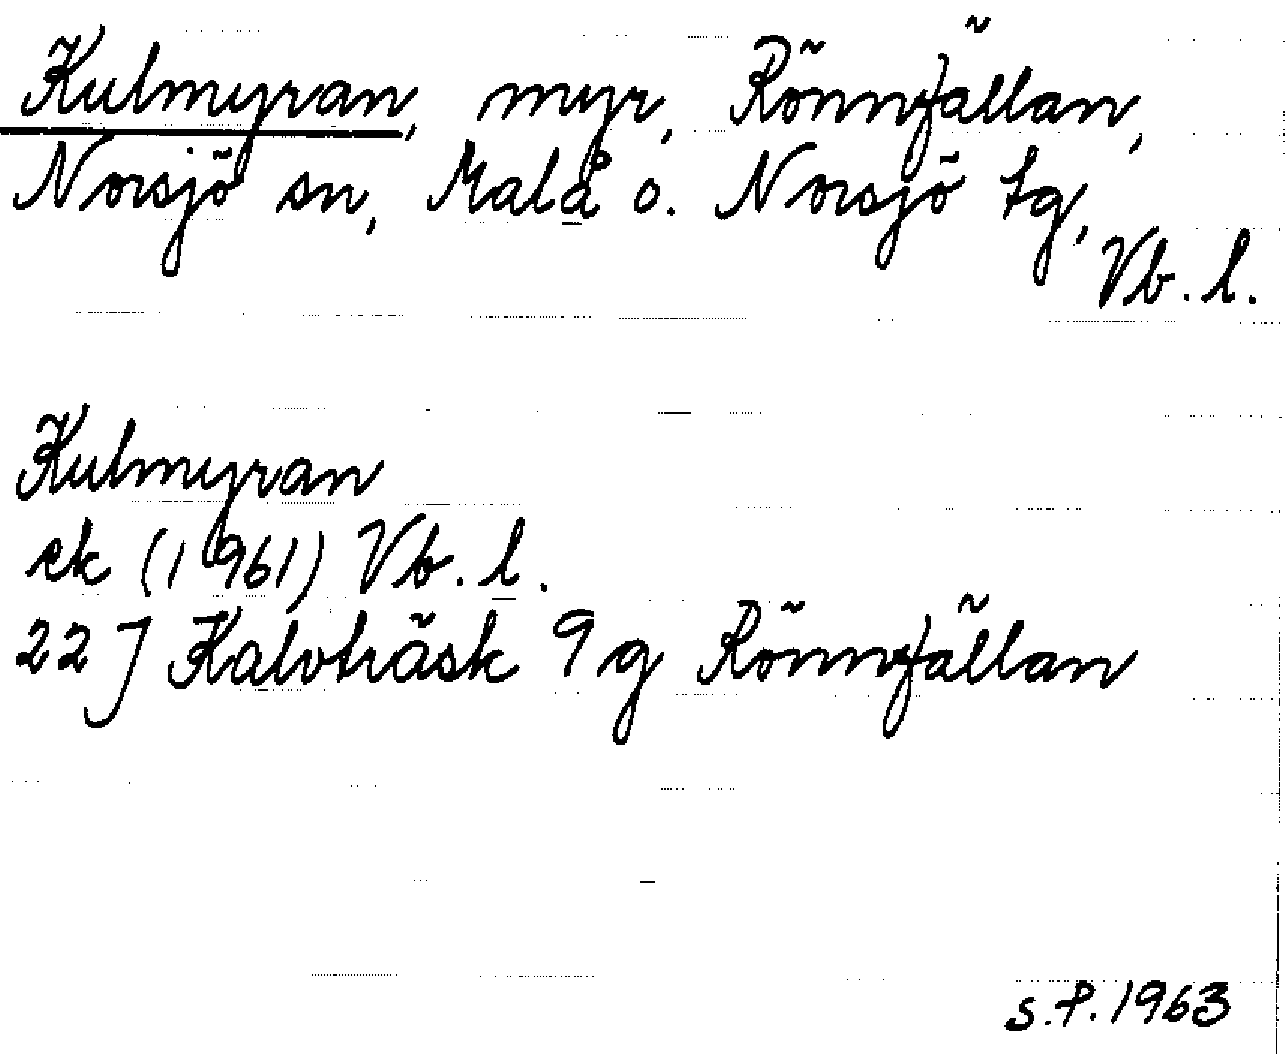 Kulmyran, myr, Rönnfällan,
Norsjö sn, Malå o. Norsjö tg,
Vb. l.
Kulmyran
ek (1961) Vb. l.
22 J Kalvträsk 9 g Rönnfällan
S.P. 1963